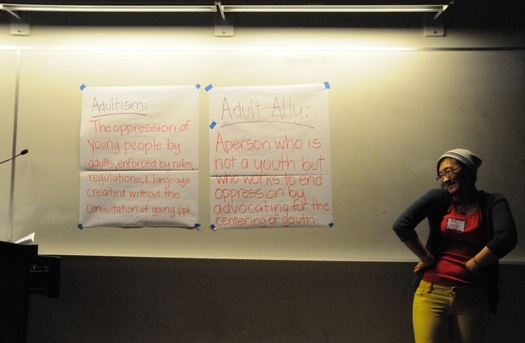 Adultism:
The oppression of
young people by
adults, enforced by rules,
regulations, & language
created without the
consultation of young ppl
Adult Ally:
A person who is
not a youth but
who works to end
oppression by
advocating for the
centering of youth